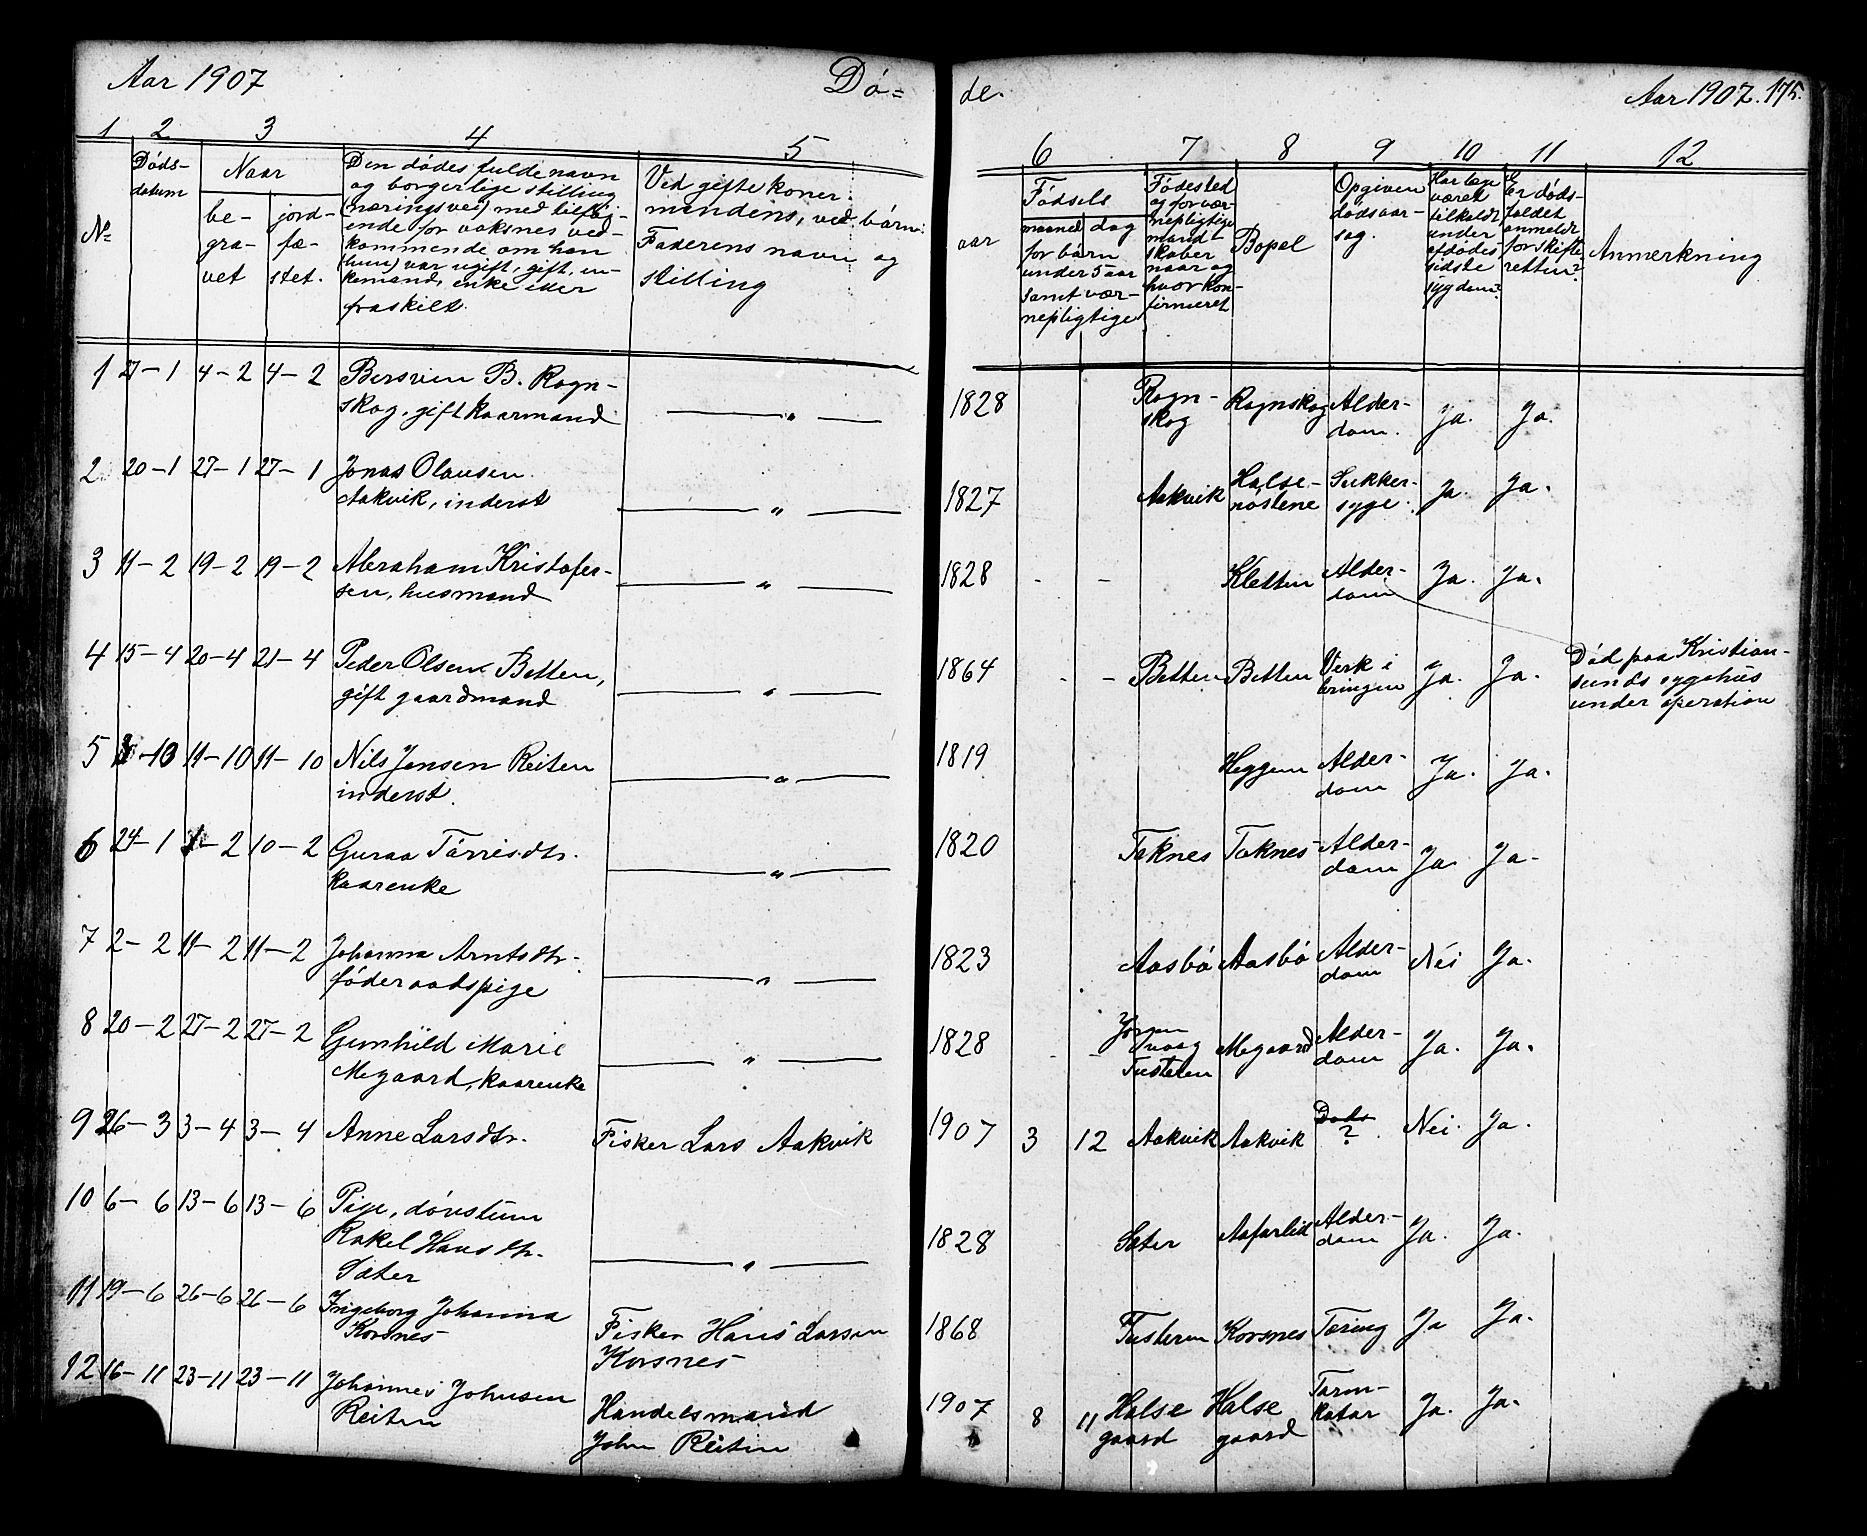 Aar 1907
Dø=
de.
Aar 1907. 175.
1 2 3 4 5
6 7 8 9 10 11 12
No
Døds-
datum
Naar
be-
gra-
vet
jord-
fæ-
stet.
Den dødes fulde navn
og borgerlige stilling
(næringsvei) med tilføi-
ende for voksnes ved-
kommende om han
(hun) var ugift, gift, en-
kemand, enke eller
fraskilt.
Ved gifte koner:
mandens, ved børn:
Faderens navn og
stilling
Fødsels
aar
maaned dag
for børn
under 5 aar
samt vær-
nepligtige
Fødested
og for vær-
nepligtige
mandt
skaber
naar og
hvor kon-
firmeret
Bopæl
Opgiven
dødsaar-
sag.
Har læge
været
tilkaldt
under
afdødes
sidste
sygdom?
Er døds-
faldet
anmeldt
for skifte
retten?
Anmerkning
1 27-1 4-2 4-2 Bersvien B. Rogn-
skog, gift kaarmand — " — 1828 Rogn-
skog Rognskog Alder-
dom. Ja. Ja.
2 20-1 27-1 27-1 Jonas Olausen
Aakvik, inderst — " — 1827 Aakvik Halse-
nøstene Sukker-
syge. Ja. Ja.
3 11-2 19-2 19-2 Abraham Kristofer-
sen, husmand — " — 1828 - - Kletten Alder-
dom Ja. Ja.
4 15-4 20-4 21-4 Peder Olsen Betten,
gift gaardmand — " — 1864 - - Betten Betten Verk i
bringen Ja. Ja. Død paa Kristian-
sunds sygehus
under operation
5 -10 11-10 11-10 Nils Jensen Reiten
inderst. — " — 1819 Heggem Alder-
dom Ja. Ja.
6 24-1 1-2 10-2 Guraa Tørrisdtr.
kaarenke — " — 1820 Taknes Taknes Alder-
dom Ja. Ja-
7 2-2 11-2 11-2 Johanna Arntsdtr.
føderaadspige — " — 1823 Aasbø Aasbø Alder-
dom Nei Ja.
8 20-2 27-2 27-2 Gunhild Marie
Megaard, kaarenke — " — 1828 - -
Tusteren Megaard Alder-
dom Ja. Ja.
9 26-3 3-4 3-4 Anne Larsdtr. Fisker Lars Aakvik 1907 3 12 Aakvik Aakvik Døds
? Nei. Ja.
10 6-6 13-6 13-6 Pige, døvstum
Rakel Hansdtr.
Sæter — " — 1828 Sæter Aafarlid Alder-
dom Ja. Ja.
11 19-6 26-6 26-6 Ingeborg Johanna
Korsnes Fisker Hans Larsen
Korsnes 1868 Tusteren Korsnes Tæring Ja Ja.
12 16-11 23-11 23-11 Johannes Johnsen
Reiten Handelsmand
John Reiten 1907 8 11 Halse
gaard Halse
gaard Tarm-
katar Ja. Ja.